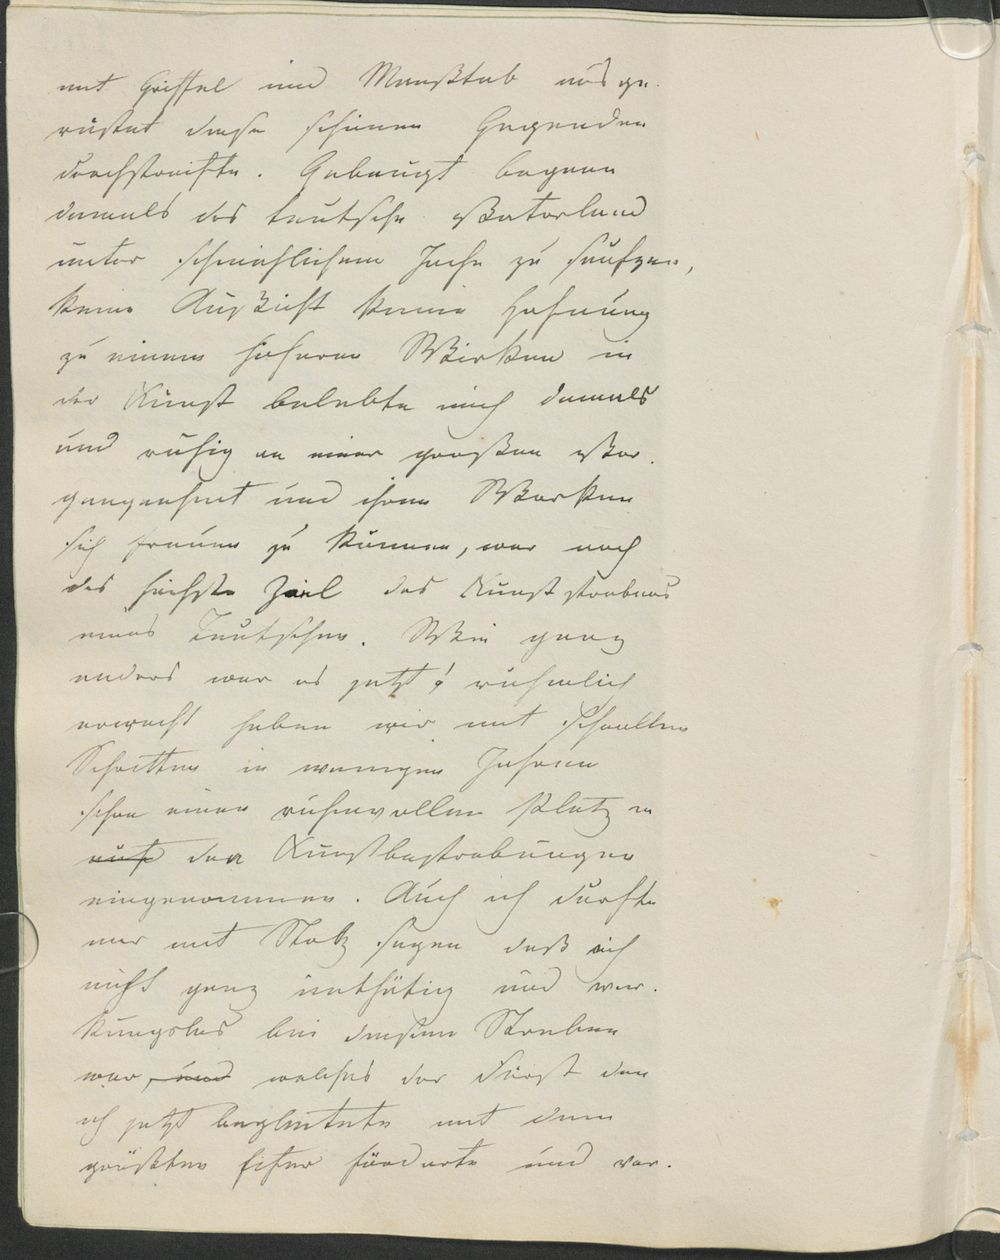 mit Griffel und Maaßstab ausge-
rüstet diese schönen Gegenden
durchstreifte. Gebeugt begann
damals das teutsche Vaterland
unter schmählichem Joche zu seufzen,
keine Aussicht keine Hofnung
zu einem höheren Wirken in
der Kunst belebte mich damals
und ruhig an einer großen Ver-
gangenheit und ihren Werken
sich freuen zu können, war noch
das höchste Ziel des Kunststrebens
eines Teutschen. Wie ganz
anders war es jetzt! rühmlich
erwacht haben wir mit schnellen
Schritten in wenigen Jahren
schon einen ruhmvollen Platz in
auf den Kunstbestrebungen
eingenommen. Auch ich durfte
mir mit Stolz sagen daß ich
nicht ganz unthätig und wir-
kungslos bei diesem Streben
war, und welches der Fürst den
ich jetzt begleitete mit dem
größten Eifer förderte und vor-